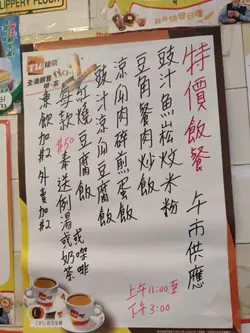 SLIPPERY FLOOR
特價飯餐 午市供應
豉汁魚崧炆米粉
豆角餐肉炒飯
涼瓜肉碎煎蛋飯
豉汁
紅燒豆腐飯
每款$50 奉送例湯或咖啡
或奶茶
凍飲加$2 外賣加$2
上午11:00至
下午3:00